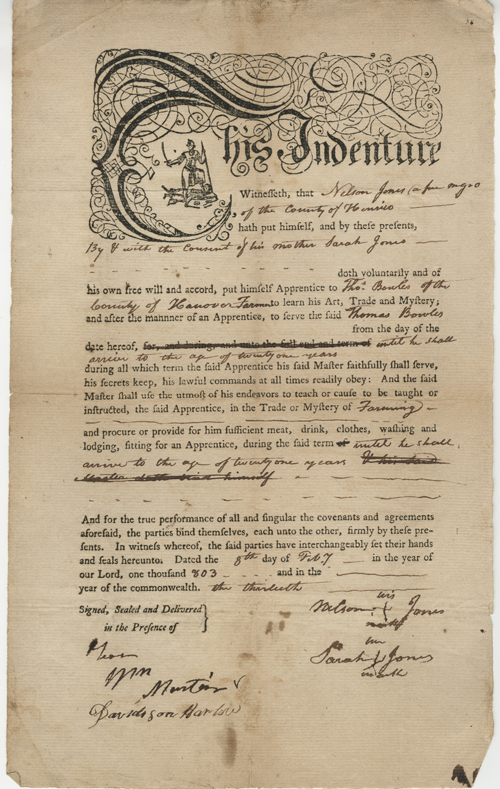 This Indenture
Witnesseth, that Nelson Jones (a free negro
of the County of Henrico
hath put himself, and by these presents,
By & with the Consent of his mother Sarah Jones
doth voluntarily and of
his own free will and accord, put himself Apprentice to Thos. Bowles of the
County of Hanover Farmer to learn his Art, Trade and Mystery;
and after the mannner of an Apprentice, to serve the said Thomas Bowles
from the day of the
date hereof, for, and during, and unto the full end and term of until he shall
arrive to the age of twenty one years
during all which term the said Apprentice his said Master faithfully shall serve,
his secrets keep, his lawful commands at all times readily obey: And the said
Master shall use the utmost of his endeavors to teach or cause to be taught or
instructed, the said Apprentice, in the Trade or Mystery of Farming
and procure or provide for him sufficient meat, drink, clothes, washing and
lodging, fitting for an Apprentice, during the said term of until he shall
arrive to the age of twenty one years
himself
And for the true performance of all and singular the covenants and agreements
aforesaid, the parties bind themselves, each unto the other, firmly by these pre-
sents. In witness whereof, the said parties have interchangeably set their hands
and seals hereunto. Dated the 8th day of Feby in the year of
our Lord, one thousand 803 and in the
year of the commonwealth. the thirtieth
Signed, Sealed and Delivered
in the Presence of
his
Nelson Jones
mark
her
Sarah Jones
mark
Wm
Martin
Davidson Harlow